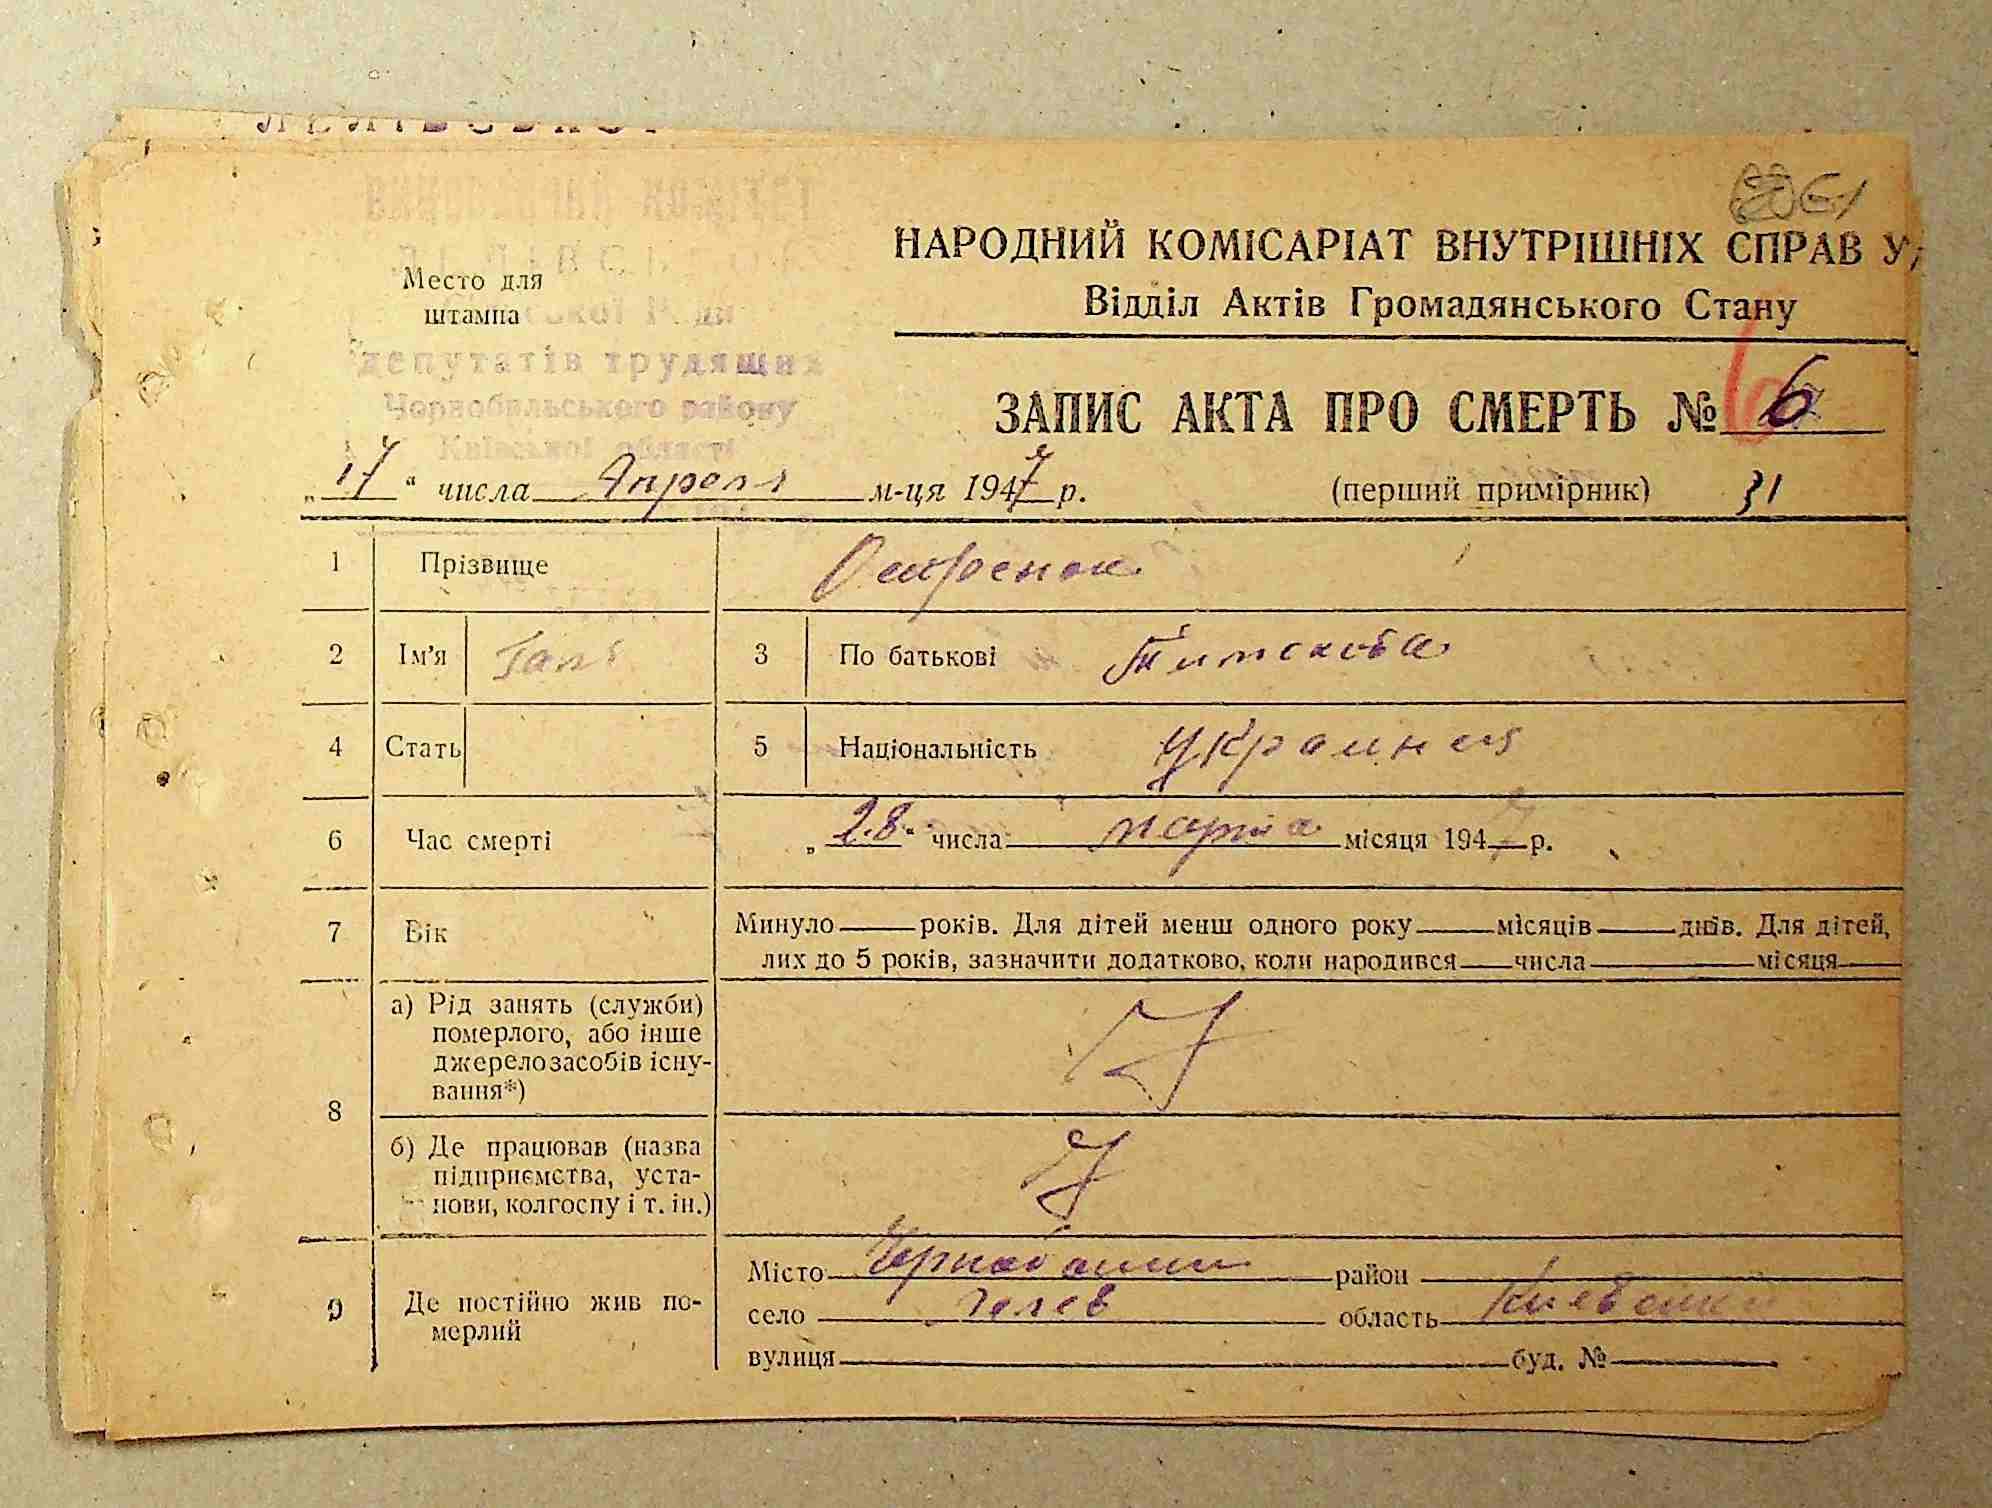 61
НАРОДНИЙ КОМІСАРІАТ ВНУТРІШНІХ СПРАВ У
Відділ Актів Громадянського Стану
Место для
штампа
депутатів трудящих
Чорнобильського району
Київської області
ЗАПИС АКТА ПРО СМЕРТЬ № 6
„17“ числа Апреля м-ця 1947 р. (перший примірник) 31
1 Прізвище
2 Ім'я Галя 3 По батькові
4 Стать 5 Національність украинка
6 Час смерті „28“ числа марта місяця 1947 р.
7 Вік Минуло років. Для дітей менш одного року місяців днів. Для дітей,
лих до 5 років, зазначити додатково, коли народився числа місяця
8 а) Рід занять (служби)
померлого, або інше
джерело засобів існу-
вання*)
б) Де працював (назва
підприємства, уста-
нови, колгоспу і т. ін.)
9 Де постійно жив по-
мерлий
Місто район
село Лелев область Киевская
вулиця буд. №